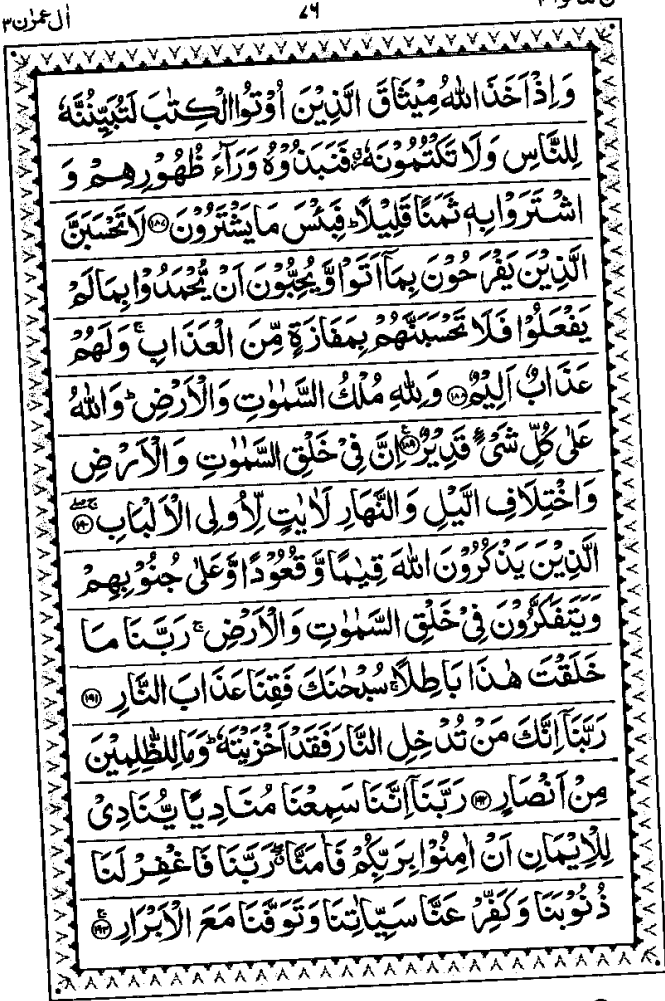 اٰل عمرٰن ٣
٧٦
وَاِذْ اَخَذَ اللّٰهُ مِيْثَاقَ الَّذِيْنَ اُوْتُوا الْكِتٰبَ لَتُبَيِّنُنَّهٗ
لِلنَّاسِ وَلَا تَكْتُمُوْنَهٗ ۫ فَنَبَذُوْهُ وَرَآءَ ظُهُوْرِهِمْ وَ
اشْتَرَوْا بِهٖ ثَمَنًا قَلِيْلًا ؕ فَبِئْسَ مَا يَشْتَرُوْنَ ﴿۱۸۷﴾ لَا تَحْسَبَنَّ
الَّذِيْنَ يَفْرَحُوْنَ بِمَاۤ اَتَوْا وَّ يُحِبُّوْنَ اَنْ يُّحْمَدُوْا بِمَا لَمْ
يَفْعَلُوْا فَلَا تَحْسَبَنَّهُمْ بِمَفَازَةٍ مِّنَ الْعَذَابِ ۚ وَلَهُمْ
عَذَابٌ اَلِيْمٌ ﴿۱۸۸﴾ وَ لِلّٰهِ مُلْكُ السَّمٰوٰتِ وَالْاَرْضِ ؕ وَاللّٰهُ
عَلٰى كُلِّ شَىْءٍ قَدِيْرٌ ﴿۱۸۹﴾ اِنَّ فِىْ خَلْقِ السَّمٰوٰتِ وَالْاَرْضِ
وَاخْتِلَافِ الَّيْلِ وَالنَّهَارِ لَاٰيٰتٍ لِّاُولِى الْاَلْبَابِ ﴿۱۹۰﴾
الَّذِيْنَ يَذْكُرُوْنَ اللّٰهَ قِيٰمًا وَّ قُعُوْدًا وَّعَلٰى جُنُوْبِهِمْ
وَيَتَفَكَّرُوْنَ فِىْ خَلْقِ السَّمٰوٰتِ وَالْاَرْضِ ۚ رَبَّنَا مَا
خَلَقْتَ هٰذَا بَاطِلًا ۚ سُبْحٰنَكَ فَقِنَا عَذَابَ النَّارِ ﴿۱۹۱﴾
رَبَّنَاۤ اِنَّكَ مَنْ تُدْخِلِ النَّارَ فَقَدْ اَخْزَيْتَهٗ ؕ وَمَا لِلظّٰلِمِيْنَ
مِنْ اَنْصَارٍ ﴿۱۹۲﴾ رَبَّنَاۤ اِنَّنَا سَمِعْنَا مُنَادِيًا يُّنَادِىْ
لِلْاِيْمَانِ اَنْ اٰمِنُوْا بِرَبِّكُمْ فَاٰمَنَّا ۖ رَبَّنَا فَاغْفِرْ لَنَا
ذُنُوْبَنَا وَكَفِّرْ عَنَّا سَيِّاٰتِنَا وَتَوَفَّنَا مَعَ الْاَبْرَارِ ﴿۱۹۳﴾